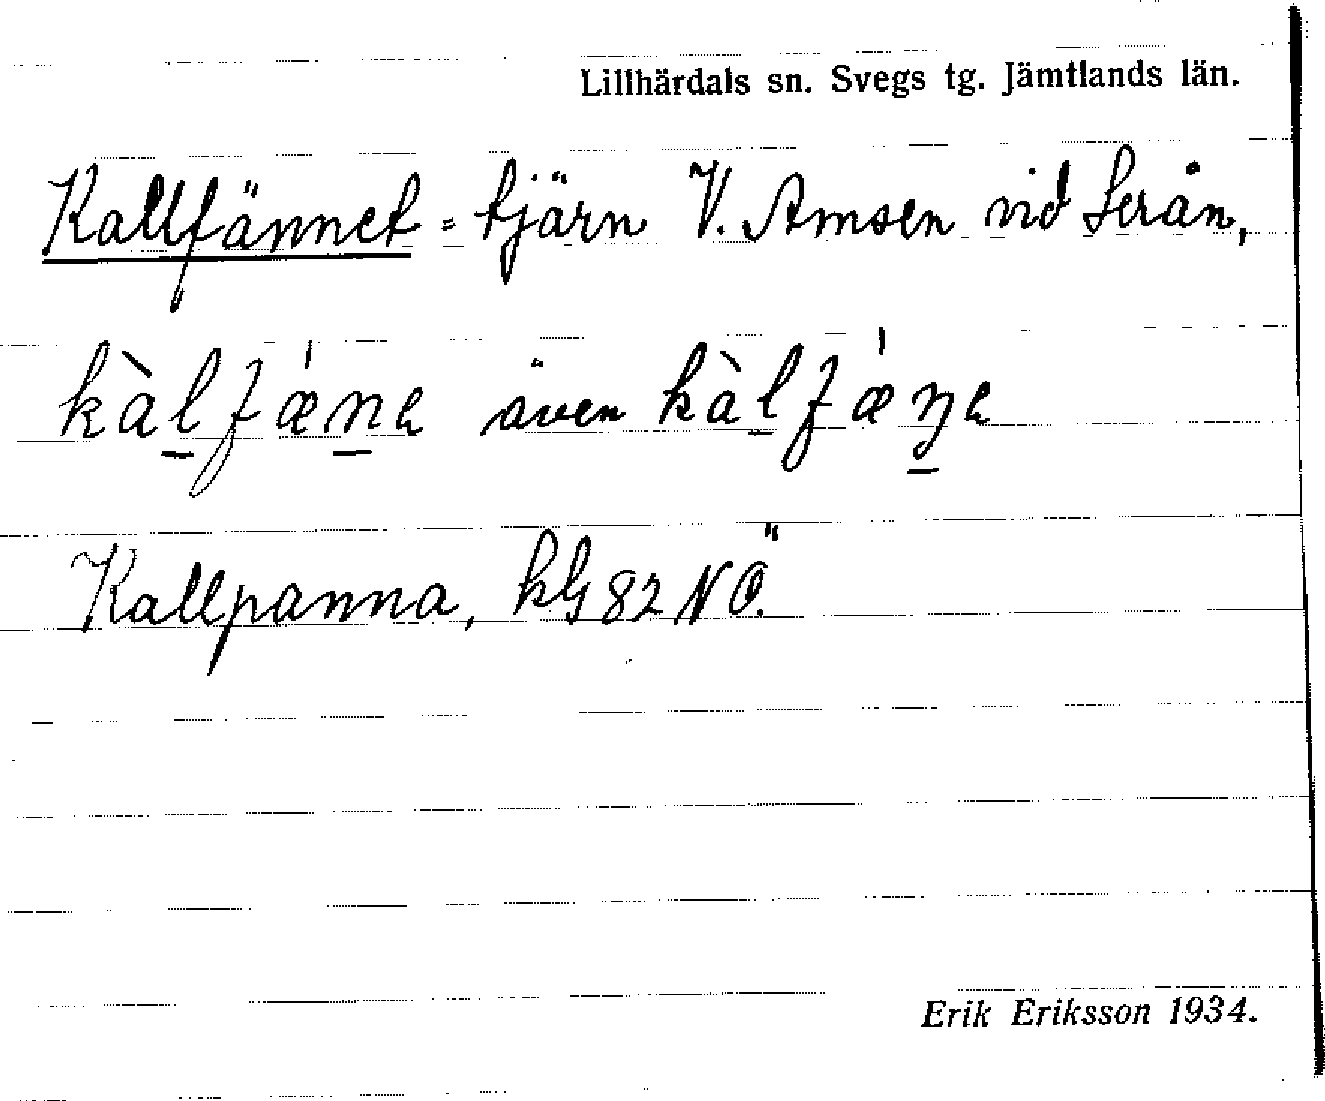 Lillhärdals sn. Svegs tg. Jämtlands län.
Kallfännet = tjärn V. Amsen vid Serån,
kàlfǽne även kàlfǽŋe
Kallpanna, kbl 82 NÖ.
Erik Eriksson 1934.